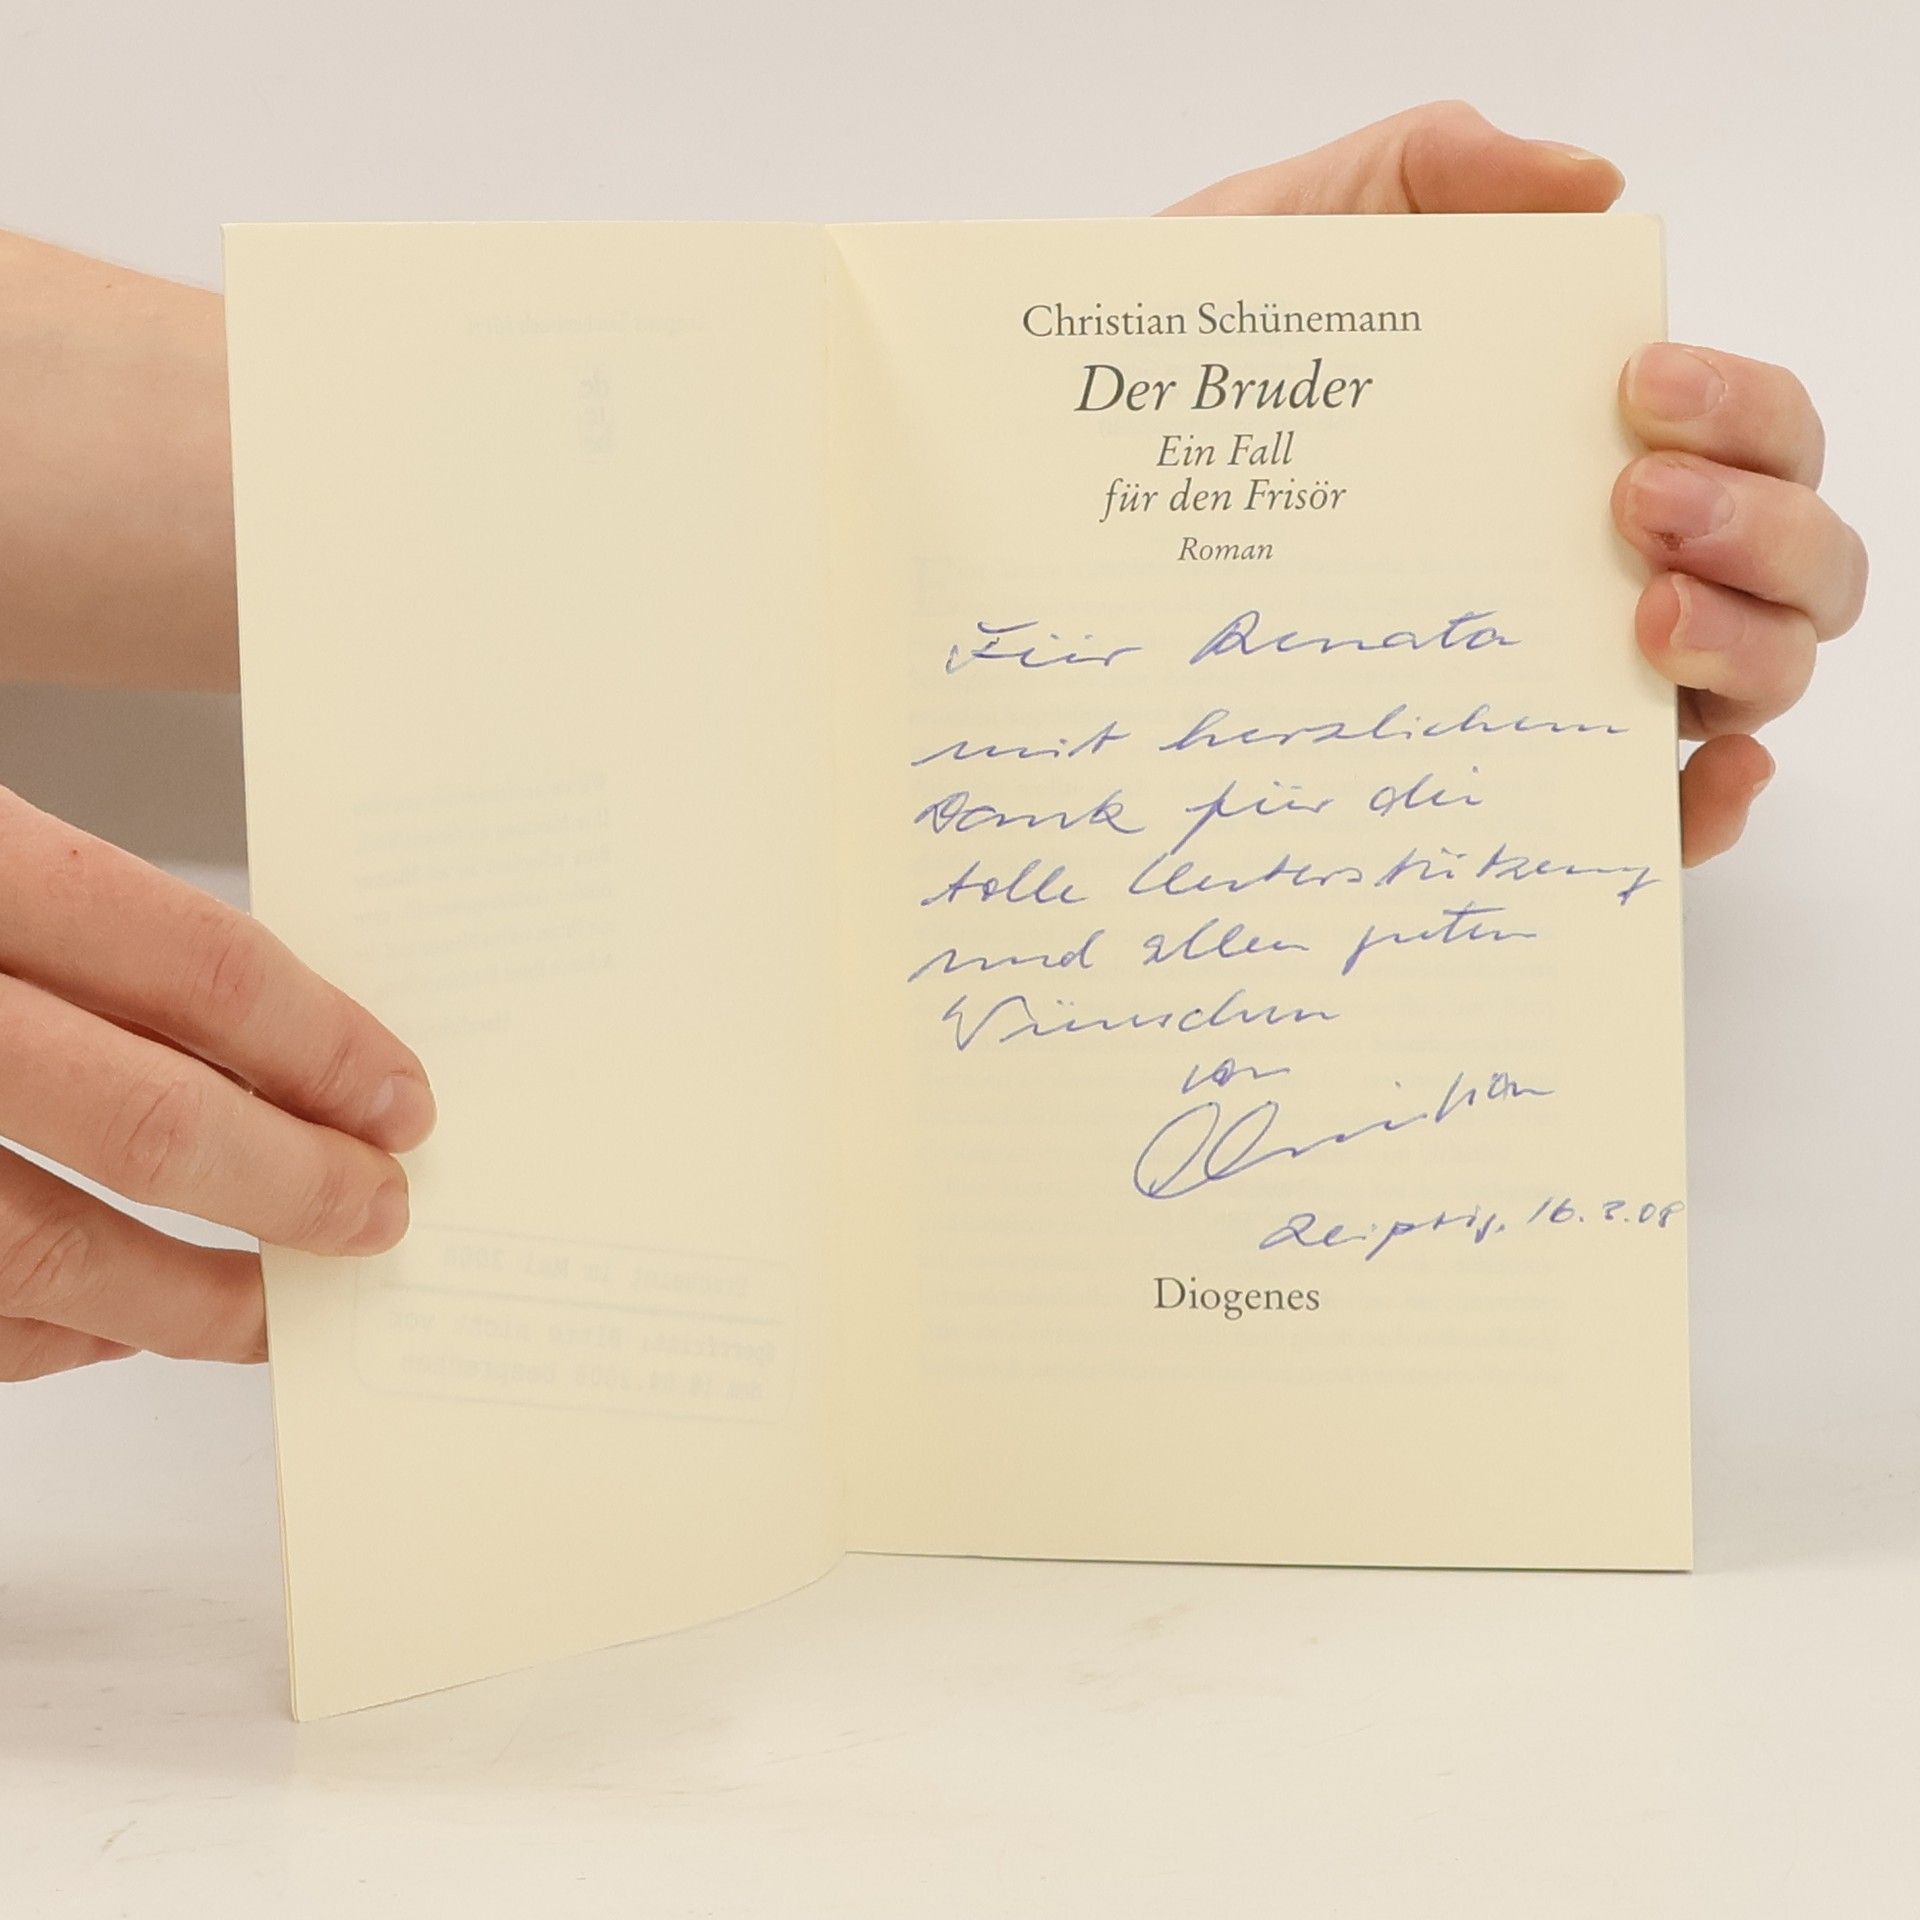 Christian Schünemann
Der Bruder
Ein Fall
für den Frisör
Roman
Für Renata
mit herzlichem
Dank für die
tolle Unterstützung
und allen guten
Wünschen
von
Christian
Leipzig, 16.3.08
Diogenes